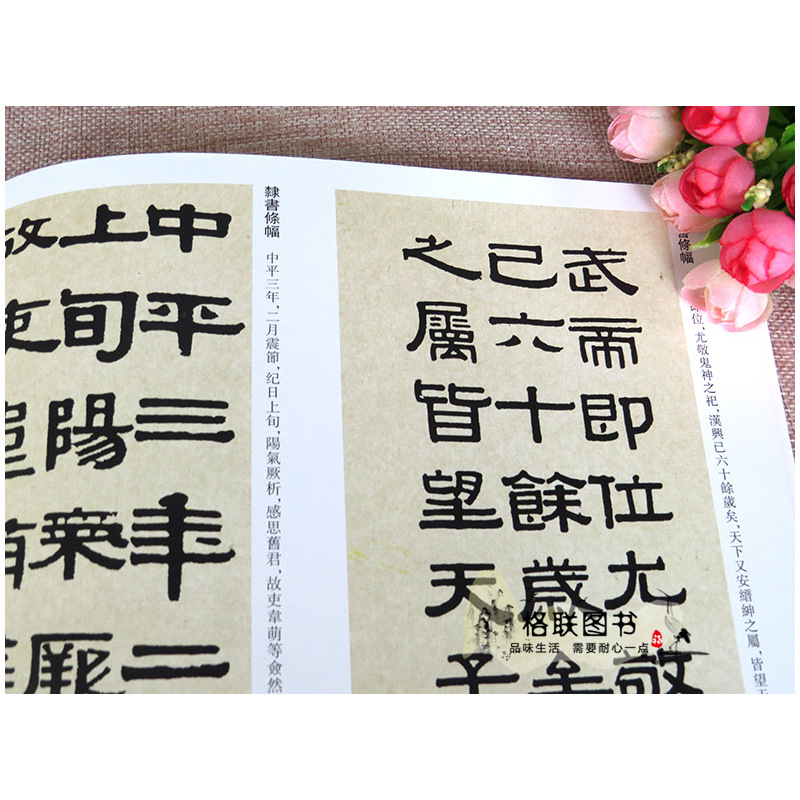 書條幅
即位，尤敬鬼神之祀，漢興已六十餘歲矣，天下又安縉紳之屬，皆望天
武帝即位尤敬
已六十餘歲
之屬皆望天子
隸書條幅
中平三年，二月震節，纪日上旬，陽氣厥析，感思舊君，故吏韋萌等僉然
中平三年二
上旬陽氣厥
故吏
格联图书
品味生活 需要耐心一点